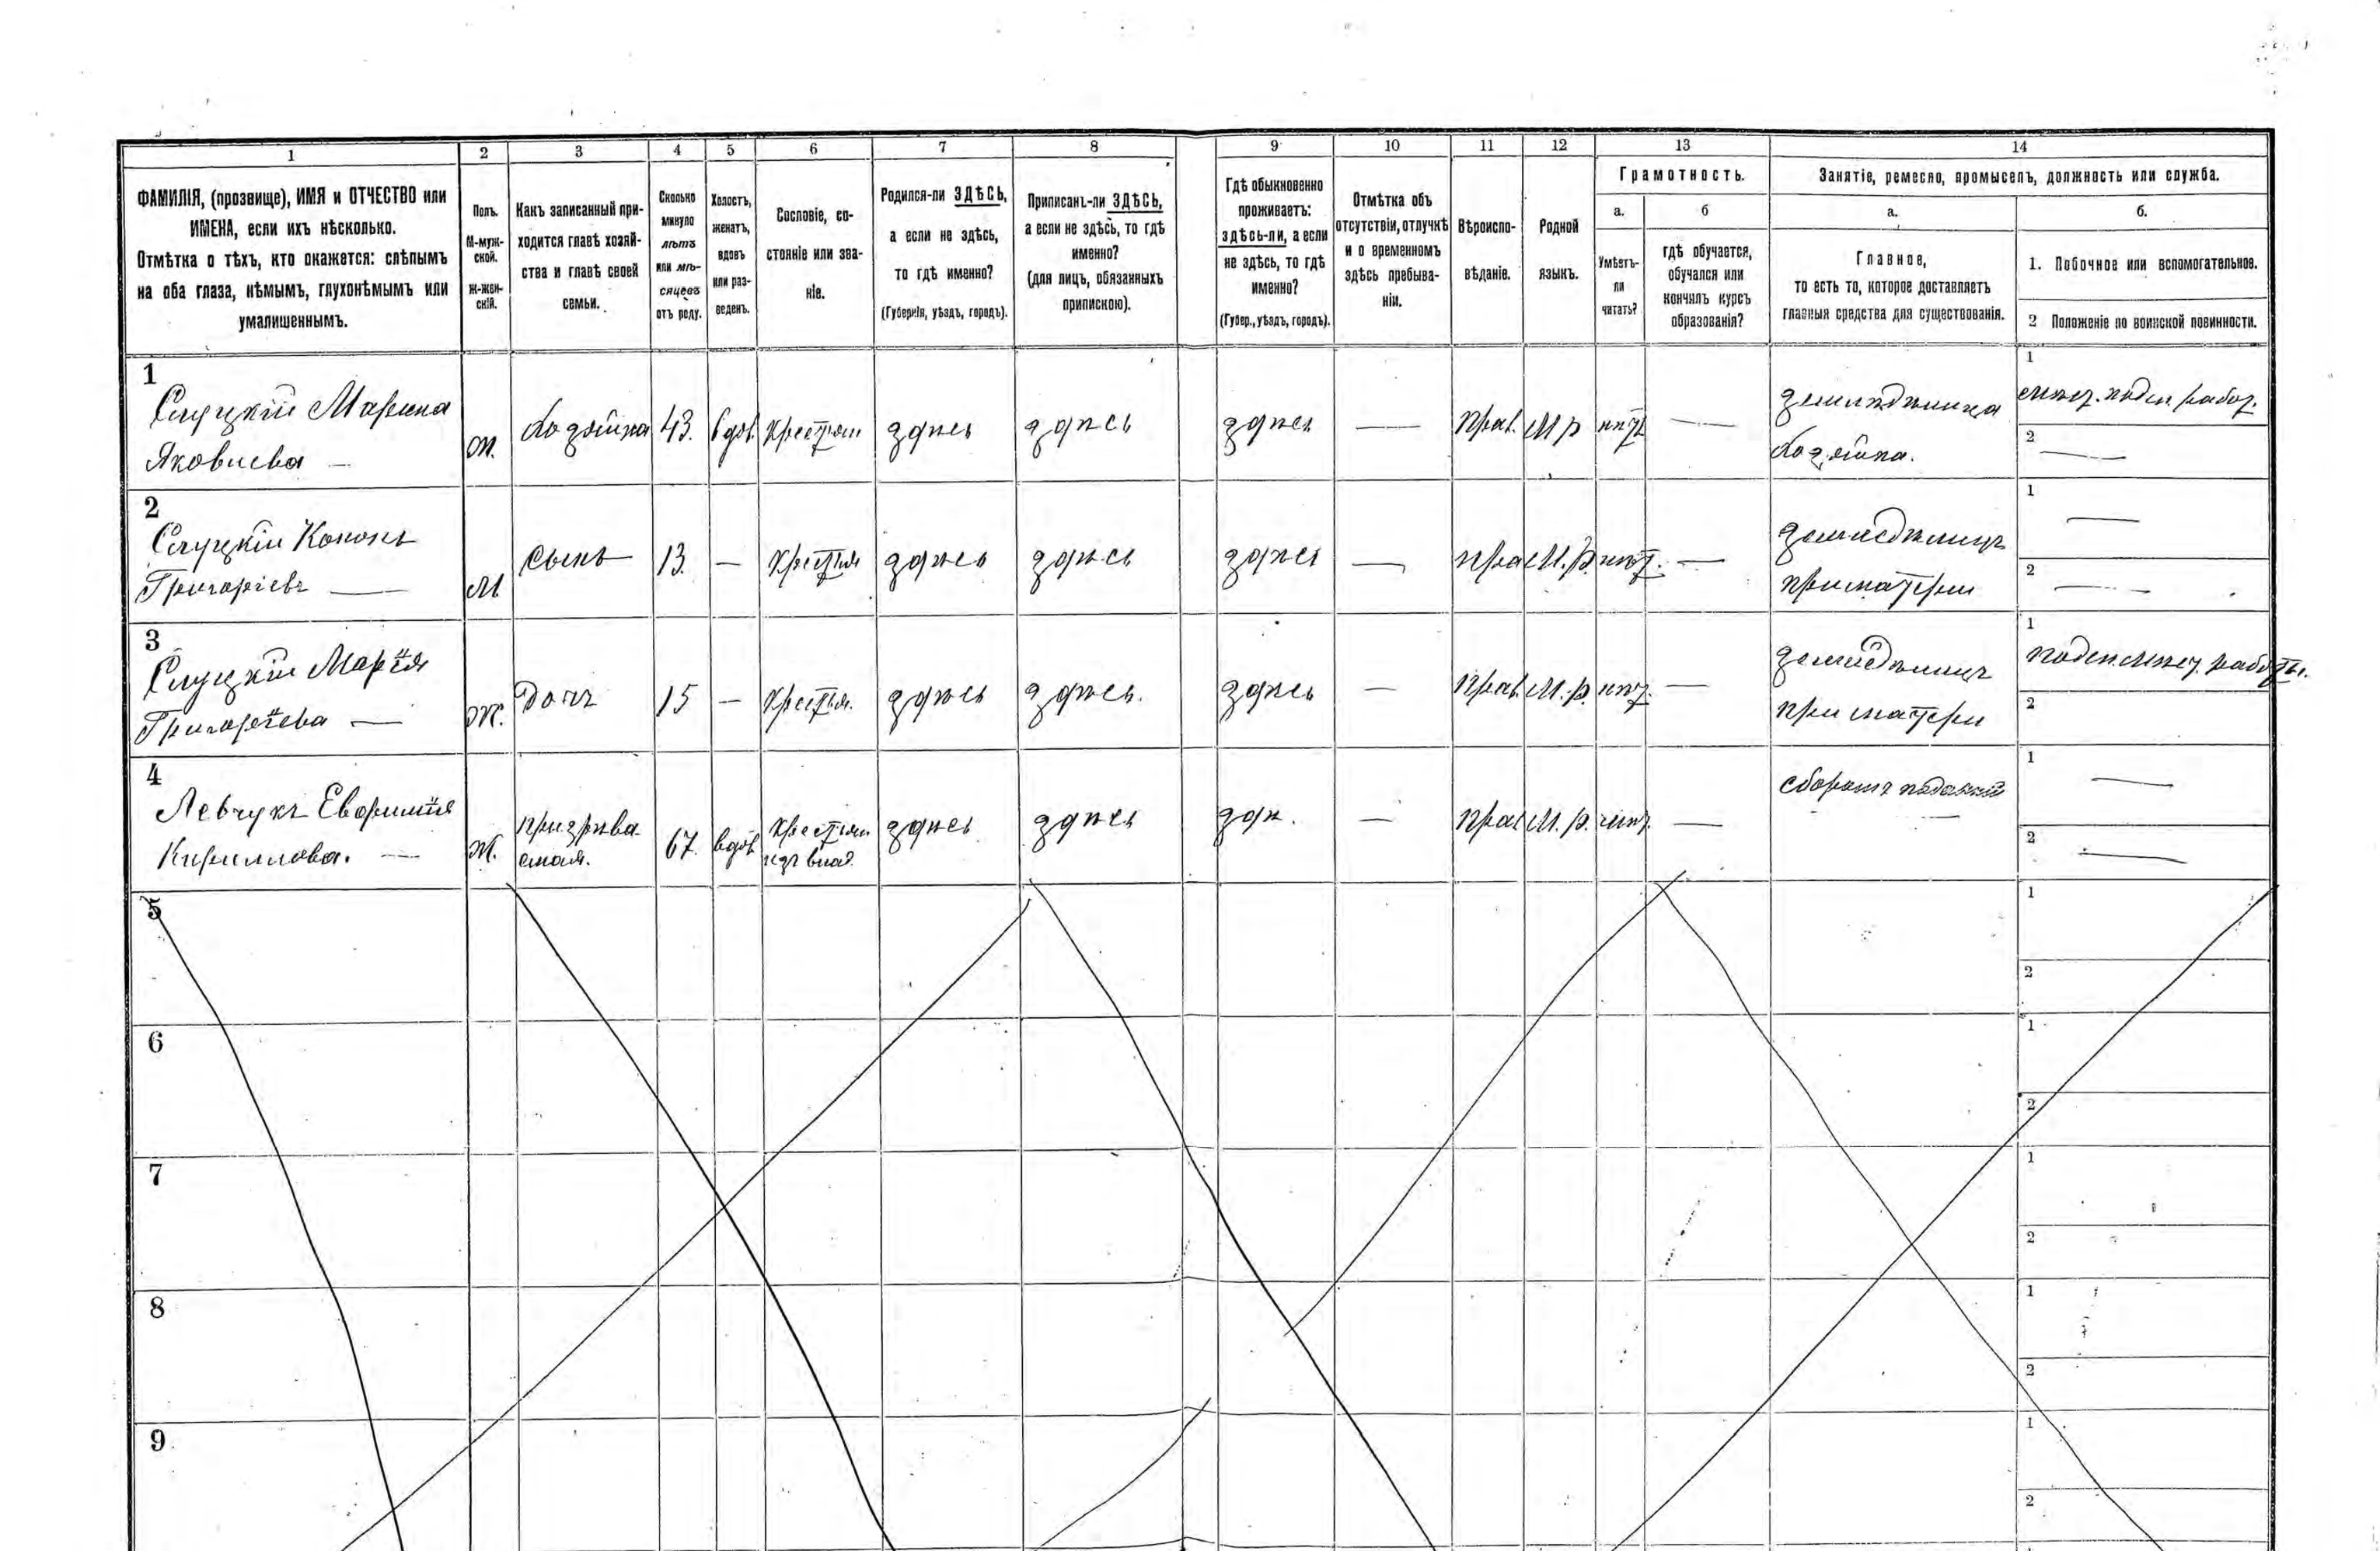 1 2 3 4 5 6 7 8 9 10 11 12 13 14
ФАМИЛІЯ, (прозвище), ИМЯ и ОТЧЕСТВО или
ИМЕНА, если ихъ нѣсколько.
Отмѣтка о тѣхъ, кто окажется: слѣпымъ
на оба глаза, нѣмымъ, глухонѣмымъ или
умалишеннымъ.
Полъ.
М-муж-
ской.
ж-жен-
скій.
Какъ записанный при-
ходится главѣ хозяй-
ства и главѣ своей
семьи.
Сколько
минуло
лѣтъ
или мѣ-
сяцевъ
отъ роду.
Холостъ,
женатъ,
вдовъ
или раз-
веденъ.
Сословіе, со-
стояніе или зва-
ніе.
Родился-ли ЗДѢСЬ,
а если не здѣсь,
то гдѣ именно?
(Губернія, уѣздъ, городъ).
Приписанъ-ли ЗДѢСЬ,
а если не здѣсь, то гдѣ
именно?
(для лицъ, обязанныхъ
припискою).
Гдѣ обыкновенно
проживаетъ:
здѣсь-ли, а если
не здѣсь, то гдѣ
именно?
(Губер., уѣздъ, городъ).
Отмѣтка объ
отсутствіи, отлучкѣ
и о временномъ
здѣсь пребыва-
ніи.
Вѣроиспо-
вѣданіе.
Родной
языкъ.
Грамотность.
а.
Умѣетъ-
ли
читать?
б
гдѣ обучается,
обучался или
кончилъ курсъ
образованія?
Занятіе, ремесло, промыселъ, должность или служба.
а.
Главное,
то есть то, которое доставляетъ
главныя средства для существованія.
б.
1. Побочное или вспомогательное.
2 Положеніе по воинской повинности.
1
Слуцкій Марина
Яковлева —
ж.
хозяйка
43.
вдов.
крестьян
здѣсь
здѣсь
здѣсь
—
прав.
М р
нѣтъ
—
земледѣлица
хозяйка.
1
мѣст. поден. работ.
2
—
2
Слуцкій Кононъ
Григоріевъ —
М
сынъ
13.
—
крестья
здѣсь
здѣсь
здѣсь
—
пра
М. р.
нѣт.
—
земледѣлецъ
при матери
1
—
2
—
3
Слуцкій Марія
Григоріева —
ж.
дочь
15
—
крестья.
здѣсь
здѣсь.
здѣсь
—
прав.
М. р.
нѣт.
—
земледѣлец
при матери
1
поден. мѣст. работы.
2
4
Левчукъ Евфимія
Кириллова. —
ж.
призрѣва
емая.
67.
вдов
крестьян
изъ влад.
здѣсь
здѣсь
здѣ.
—
прав
М. р.
нѣт.
—
сборомъ подаяній
—
1
—
2
—
5
1
2
6
1
2
7
1
2
8
1
2
9
1
2